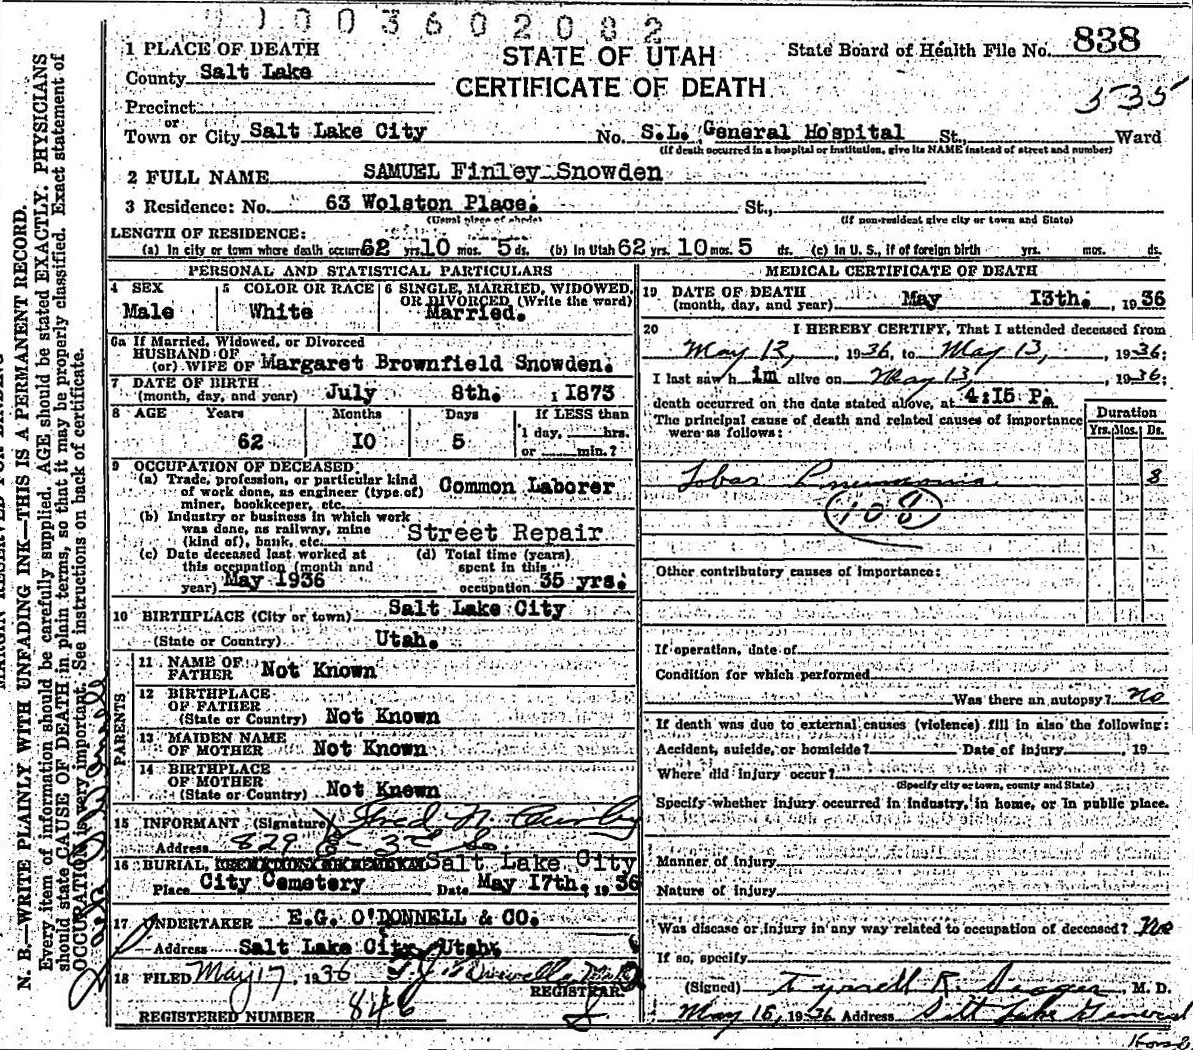 0 1 0 0 3 6 0 2 0 8 2
STATE OF UTAH
CERTIFICATE OF DEATH
State Board of Health File No. 838
535
1 PLACE OF DEATH
County Salt Lake
Precinct
or
Town or City Salt Lake City No. S.L. General Hospital St., Ward
(If death occurred in a hospital or institution, give its NAME instead of street and number)
2 FULL NAME SAMUEL Finley Snowden
3 Residence: No. 63 Wolston Place. St.,
(Usual place of abode) (If non-resident give city or town and State)
LENGTH OF RESIDENCE:
(a) In city or town where death occurred 62 yrs. 10 mos. 5 ds. (b) In Utah 62 yrs. 10 mos. 5 ds. (c) In U. S., if of foreign birth yrs. mos. ds.
PERSONAL AND STATISTICAL PARTICULARS
4 SEX
Male
5 COLOR OR RACE
White
6 SINGLE, MARRIED, WIDOWED,
OR DIVORCED (Write the word)
Married.
6a If Married, Widowed, or Divorced
HUSBAND OF
(or) WIFE OF Margaret Brownfield Snowden.
7 DATE OF BIRTH
(month, day, and year) July 8th. , 1873
8 AGE Years Months Days If LESS than
62 10 5 1 day, hrs.
or min.?
9 OCCUPATION OF DECEASED
(a) Trade, profession, or particular kind
of work done, as engineer (type of)
miner, bookkeeper, etc. Common Laborer
(b) Industry or business in which work
was done, as railway, mine
(kind of), bank, etc. Street Repair
(c) Date deceased last worked at
this occupation (month and
year) May 1936
(d) Total time (years)
spent in this
occupation 35 yrs.
10 BIRTHPLACE (City or town) Salt Lake City
(State or Country) Utah.
PARENTS
11 NAME OF
FATHER Not Known
12 BIRTHPLACE
OF FATHER
(State or Country) Not Known
13 MAIDEN NAME
OF MOTHER Not Known
14 BIRTHPLACE
OF MOTHER
(State or Country) Not Known
15 INFORMANT (Signature) Fred N.
Address 829 3rd So
16 BURIAL, CREMATION OR REMOVAL Salt Lake City
Place City Cemetery Date May 17th, 1936
17 UNDERTAKER E.G. O'DONNELL & CO.
Address Salt Lake City, Utah.
18 FILED May 17, 1936
REGISTRAR.
REGISTERED NUMBER 846
MEDICAL CERTIFICATE OF DEATH
19 DATE OF DEATH
(month, day, and year) May 13th. , 1936
20 I HEREBY CERTIFY, That I attended deceased from
May 12, , 1936, to May 13, , 1936;
I last saw h im alive on May 13, , 1936;
death occurred on the date stated above, at 4:15 P.
The principal cause of death and related causes of importance
were as follows:
Duration
Yrs. Mos. Ds.
Lobar Pneumonia 8
108
Other contributory causes of importance:
If operation, date of
Condition for which performed
Was there an autopsy? no
If death was due to external causes (violence) fill in also the following:
Accident, suicide, or homicide? Date of injury , 19
Where did injury occur?
(Specify city or town, county and State)
Specify whether injury occurred in industry, in home, or in public place.
Manner of injury
Nature of injury
Was disease or injury in any way related to occupation of deceased? No
If so, specify
(Signed) Tyrrell R. Seager, M. D.
May 15, 1936 Address Salt Lake General
Hosp
N. B.—WRITE PLAINLY WITH UNFADING INK—THIS IS A PERMANENT RECORD.
Every item of information should be carefully supplied. AGE should be stated EXACTLY. PHYSICIANS
should state CAUSE OF DEATH in plain terms, so that it may be properly classified. Exact statement of
OCCUPATION is very important. See instructions on back of certificate.